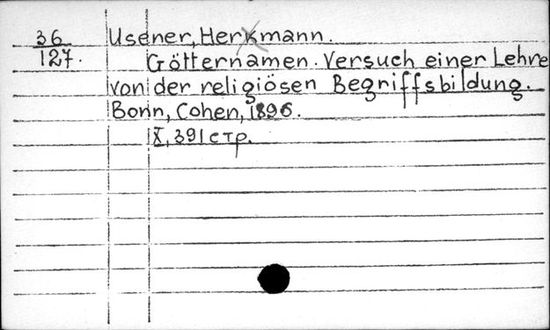 36 Usener, Hermann.
127. Götternamen. Versuch einer Lehre
von der religiösen Begriffsbildung.
Bonn, Cohen, 1896.
X, 391 стр.